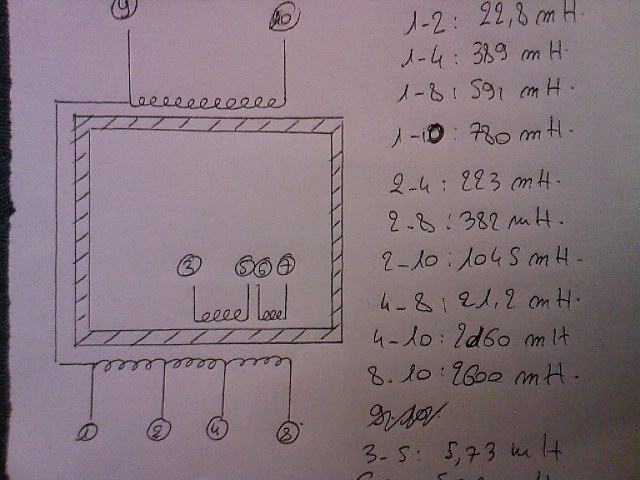 9 10
3 5 6 7
1 2 4 8
1-2: 22,8 mH.
1-4: 389 mH.
1-8: 591 mH.
1-10: 780 mH.
2-4: 223 mH.
2-8: 382 mH.
2-10: 1045 mH.
4-8: 21,2 mH.
4-10: 2160 mH
8-10: 2600 mH.
3-5: 5,73 mH